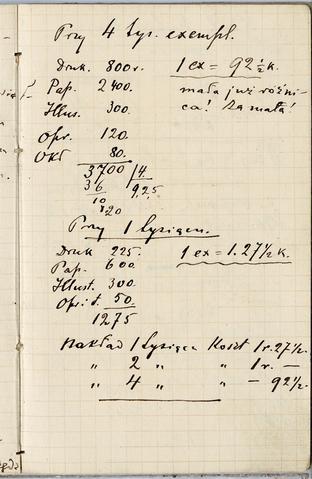 Przy 4 tys. exempl.
Druk. 800 r. 1 ex = 92 ½ k.
Pap. 2400. mała już różni-
Illus. 300. ca! Za mała!
Opr. 120.
Okł 80.
3700 4.
36 9,25
10
820
Przy 1 tysiącu.
Druk 225. 1 ex = 1.27½ k.
Pap. 600
Illust. 300.
Opr. i. 50.
1275
Nakład 1 tysiąca Koszt 1 r. 27½.
" 2 " " 1 r. —
" 4 " " — 92½.